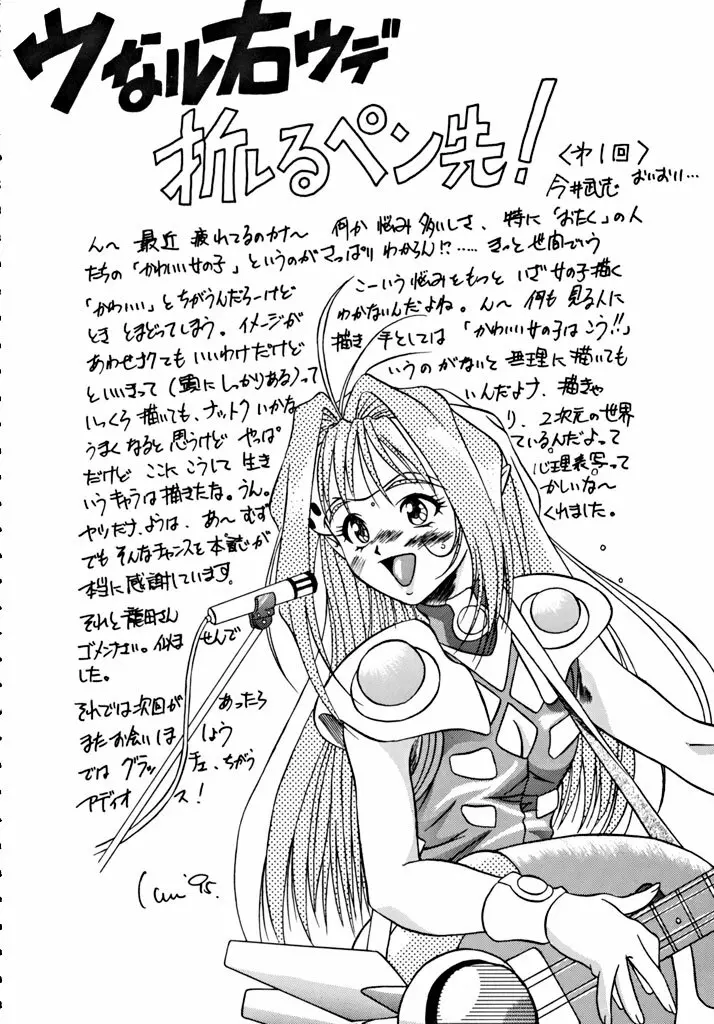 ウなル右ウデ
折しるペン先！
〈才1回〉
今井武志 おいおい…
ん〜 最近 疲れてるのカナ〜 何か悩み多いしさ、特に「おたく」の人
たちの「かわいい女の子」というのがさっぱり わからん!?…… きっと世間でいう
「かわいい」とちがうんだろーけど こーいう悩みをもっと いざ女の子描く
とき とまどってしまう。イメージが わかないんだよね。ん〜 何も 見る人に
あわせナクても いいわけだけど 描き 手としては「かわいい女の子はこう!!」
といいきって(頭に しっかりある)って いうの がないと 無理に描いても
いっくら 描いても、ナットク いかな いんだよナ、描きゃ
うまくなると 思うけど やっぱ り、2次元の世界
だけど ここに こうして 生き ているんだよって
いうキャラは描きたな。うん。 心理表写って
ヤツだナ、ようは、あ〜 むず かしいな〜
でも そんなチャンスを 本誌が くれました。
本当に感謝しています。
それと 龍田さん
ゴメンナさい。似ま せんで
した。
それでは次回が あったら
またお会いしま しょう
では グラッ チェ、ちがう
アディオ ス！
'95.